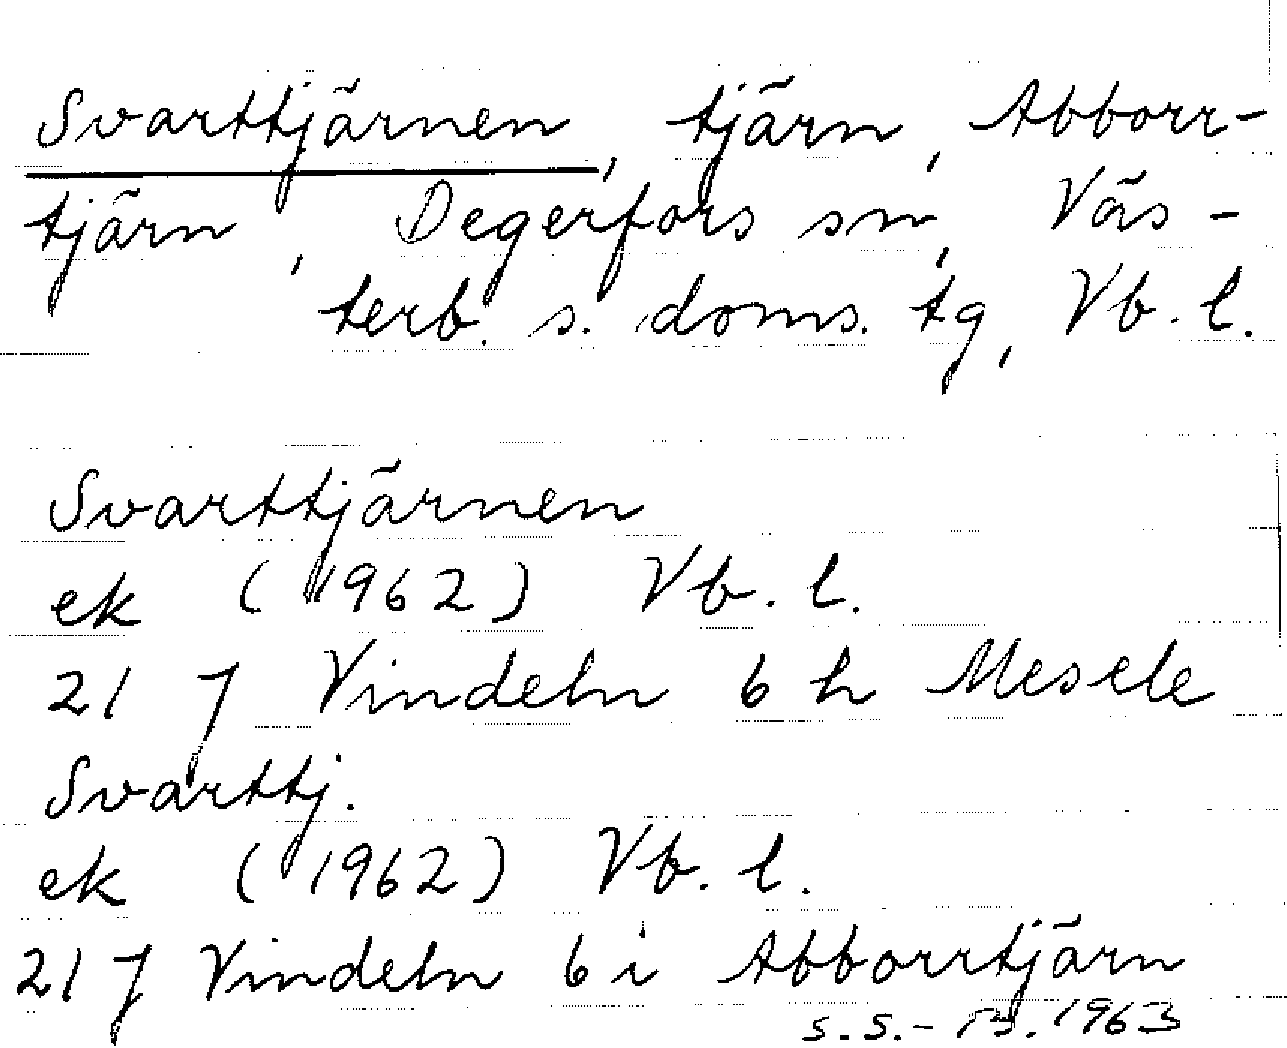 Svarttjärnen, tjärn, Abborr-
tjärn, Degerfors sn, Väs-
terb. s. doms. tg, Vb. l.
Svarttjärnen
ek (1962) Vb. l.
21 J Vindeln 6 h Mesele
Svarttj.
ek (1962) Vb. l.
21 J Vindeln 6 i Abborrtjärn
s.s.- 1963